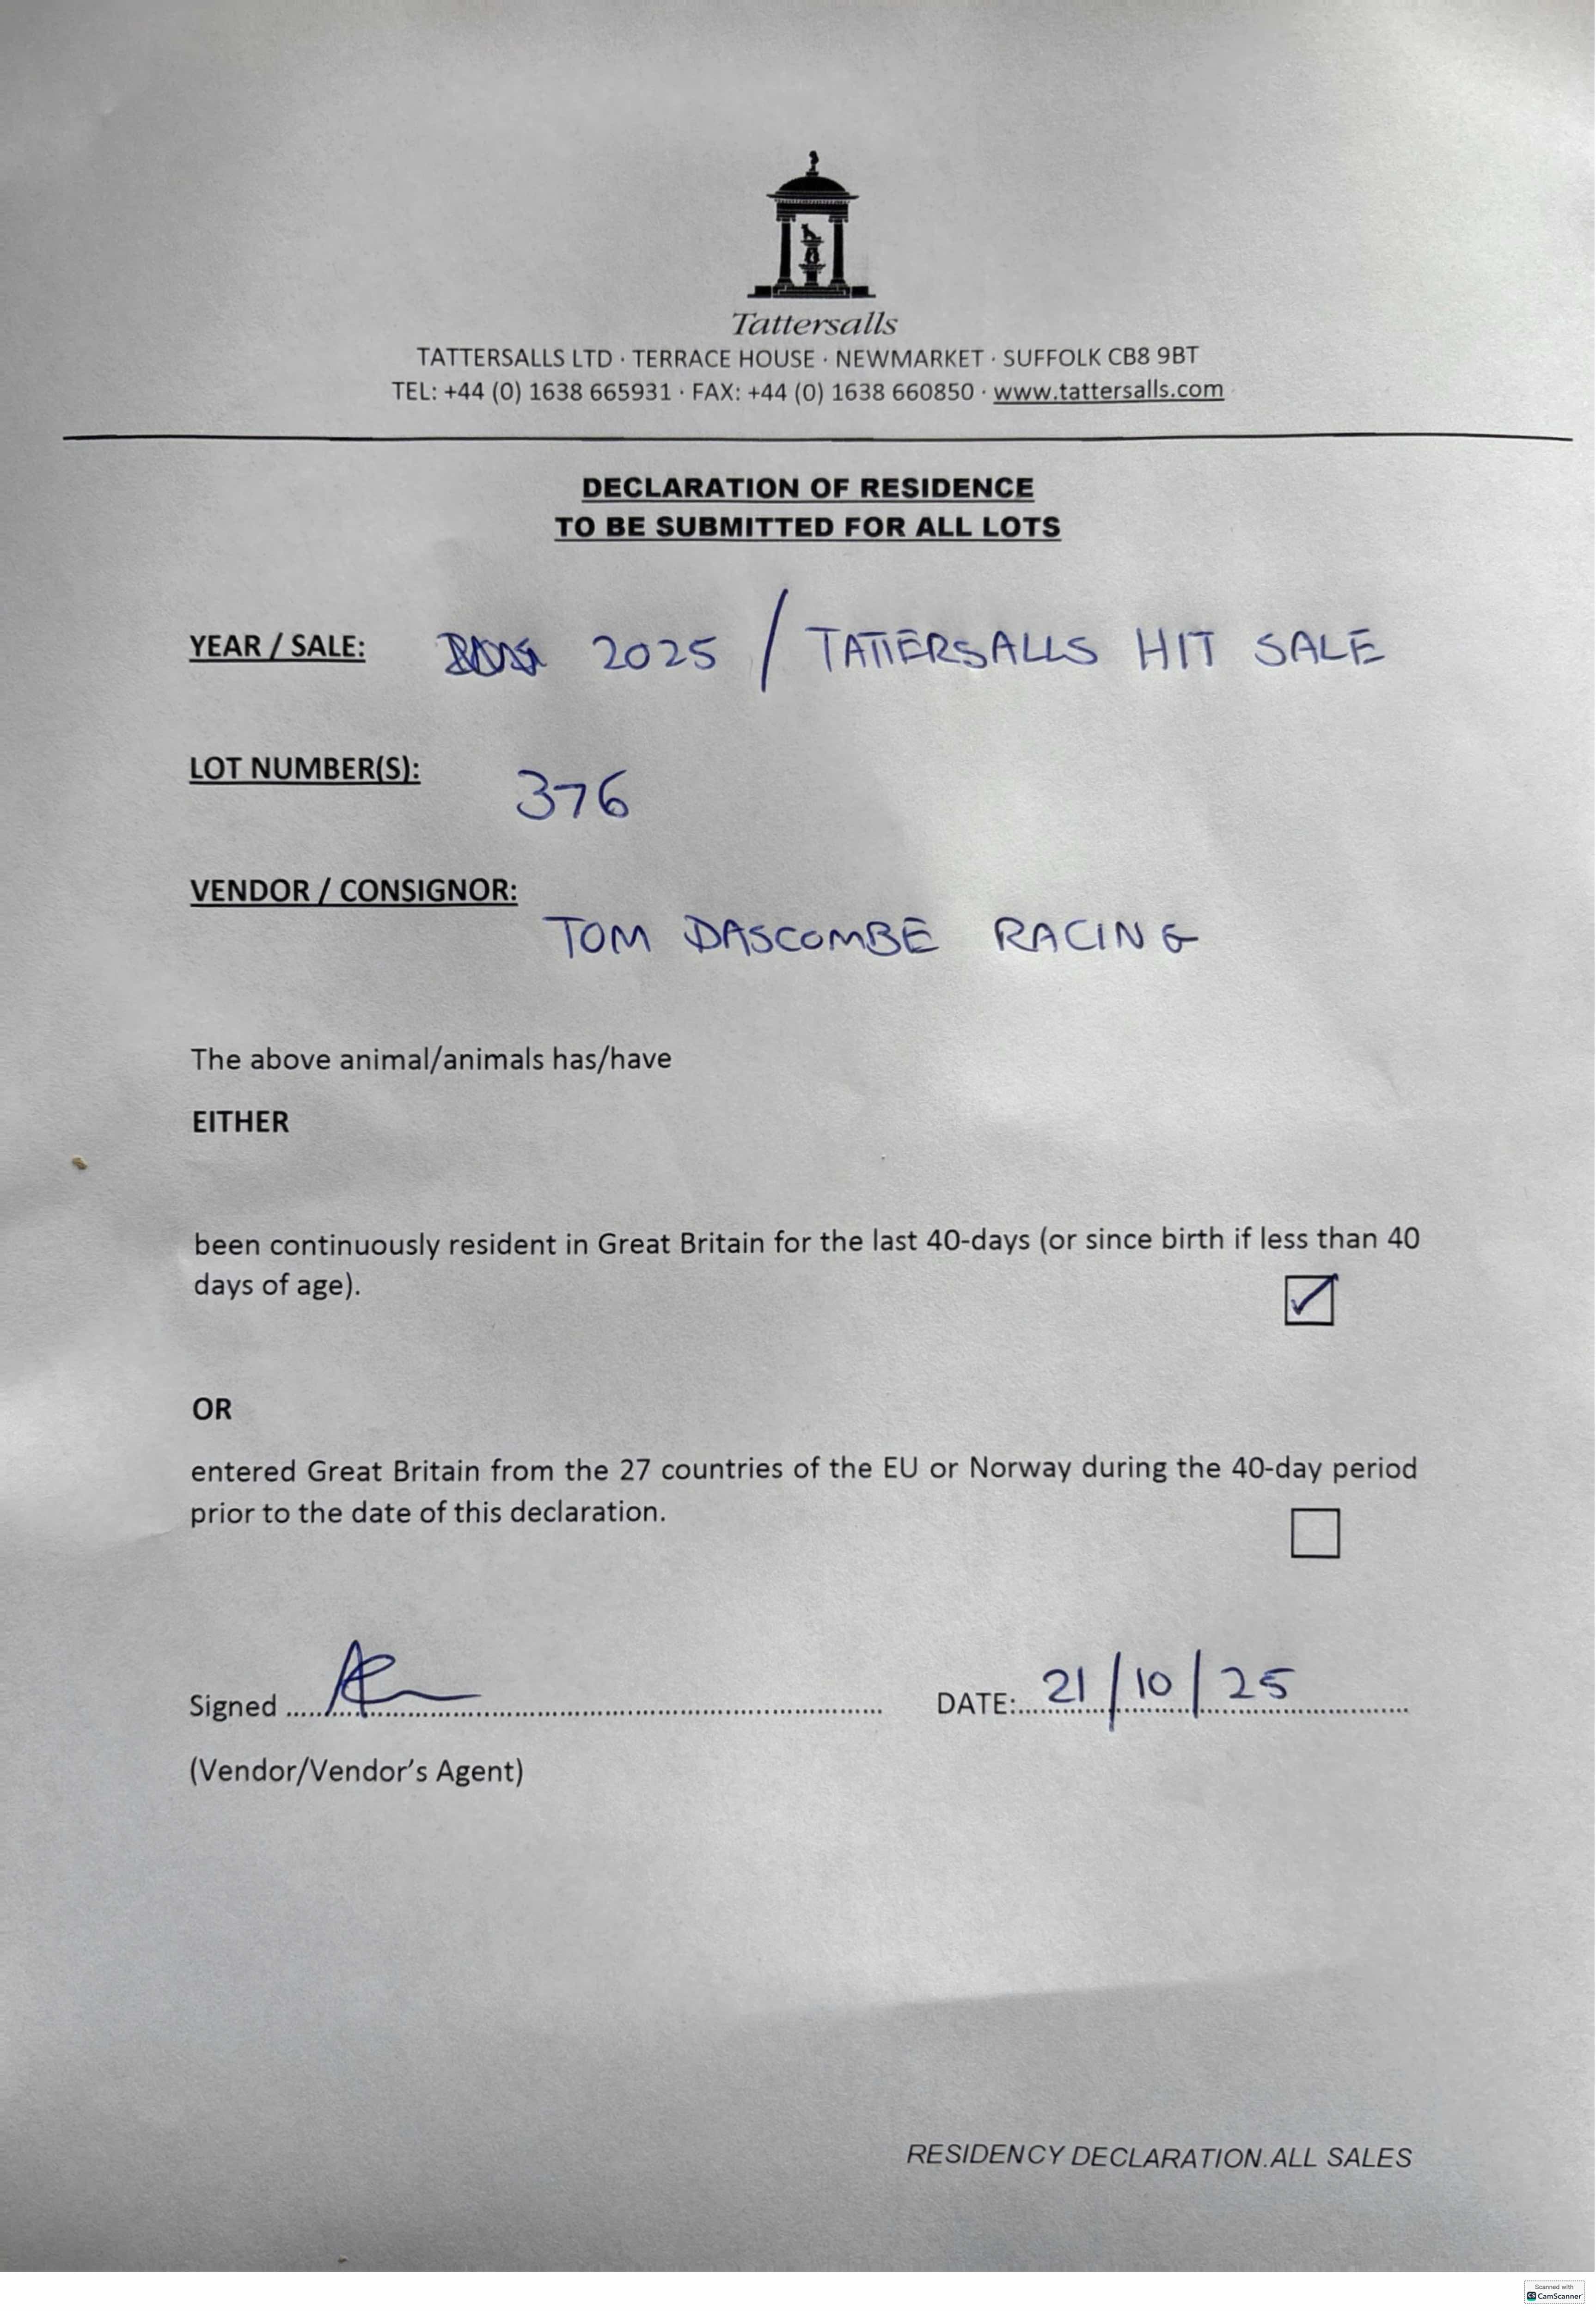 Tattersalls
TATTERSALLS LTD · TERRACE HOUSE · NEWMARKET · SUFFOLK CB8 9BT
TEL: +44 (0) 1638 665931 · FAX: +44 (0) 1638 660850 · www.tattersalls.com
DECLARATION OF RESIDENCE
TO BE SUBMITTED FOR ALL LOTS
YEAR / SALE: 2025 / TATTERSALLS HIT SALE
LOT NUMBER(S): 376
VENDOR / CONSIGNOR: TOM DASCOMBE RACING
The above animal/animals has/have
EITHER
been continuously resident in Great Britain for the last 40-days (or since birth if less than 40
days of age).
OR
entered Great Britain from the 27 countries of the EU or Norway during the 40-day period
prior to the date of this declaration.
Signed DATE: 21/10/25
(Vendor/Vendor's Agent)
RESIDENCY DECLARATION.ALL SALES
Scanned with
CS CamScanner